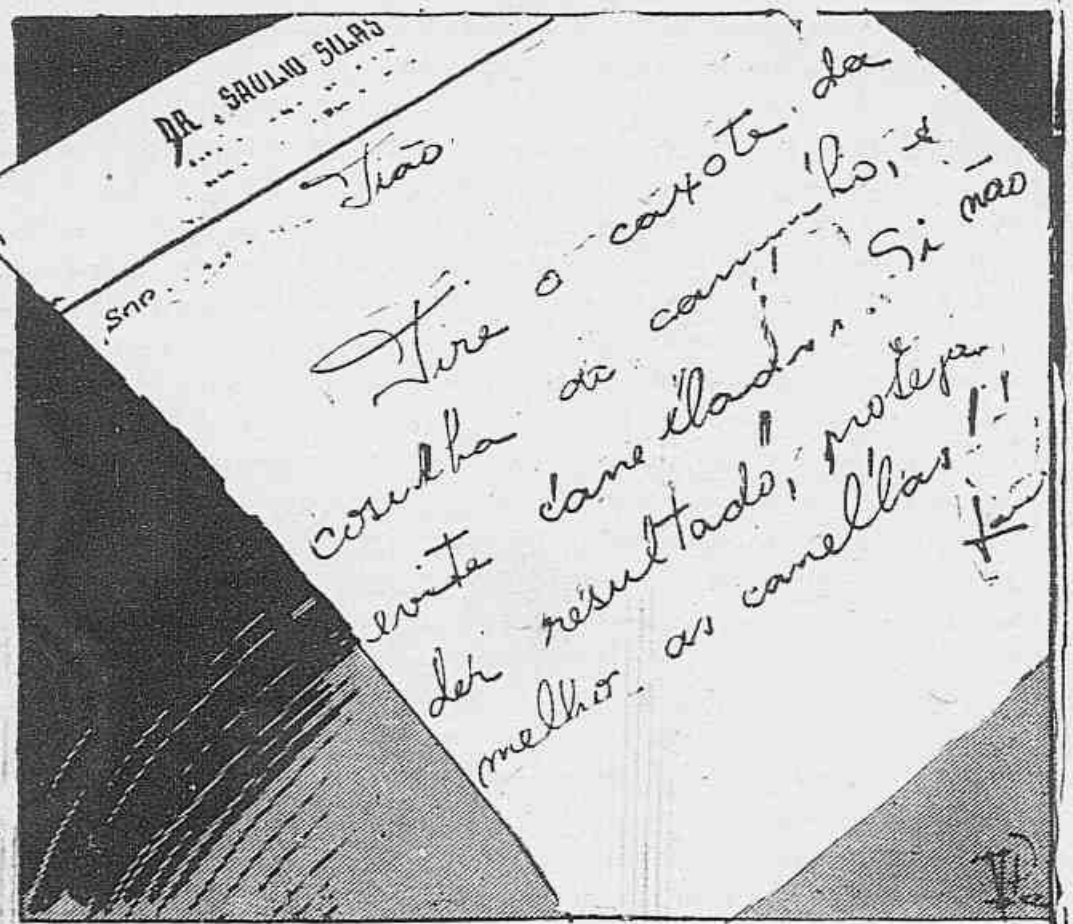 DR. SAULIO SILAS
Snr. Tião
Tire o caixote da
cosinha do caminho, e
evite canelladas. Si não
der resultado, proteja
melhor as canellas!!